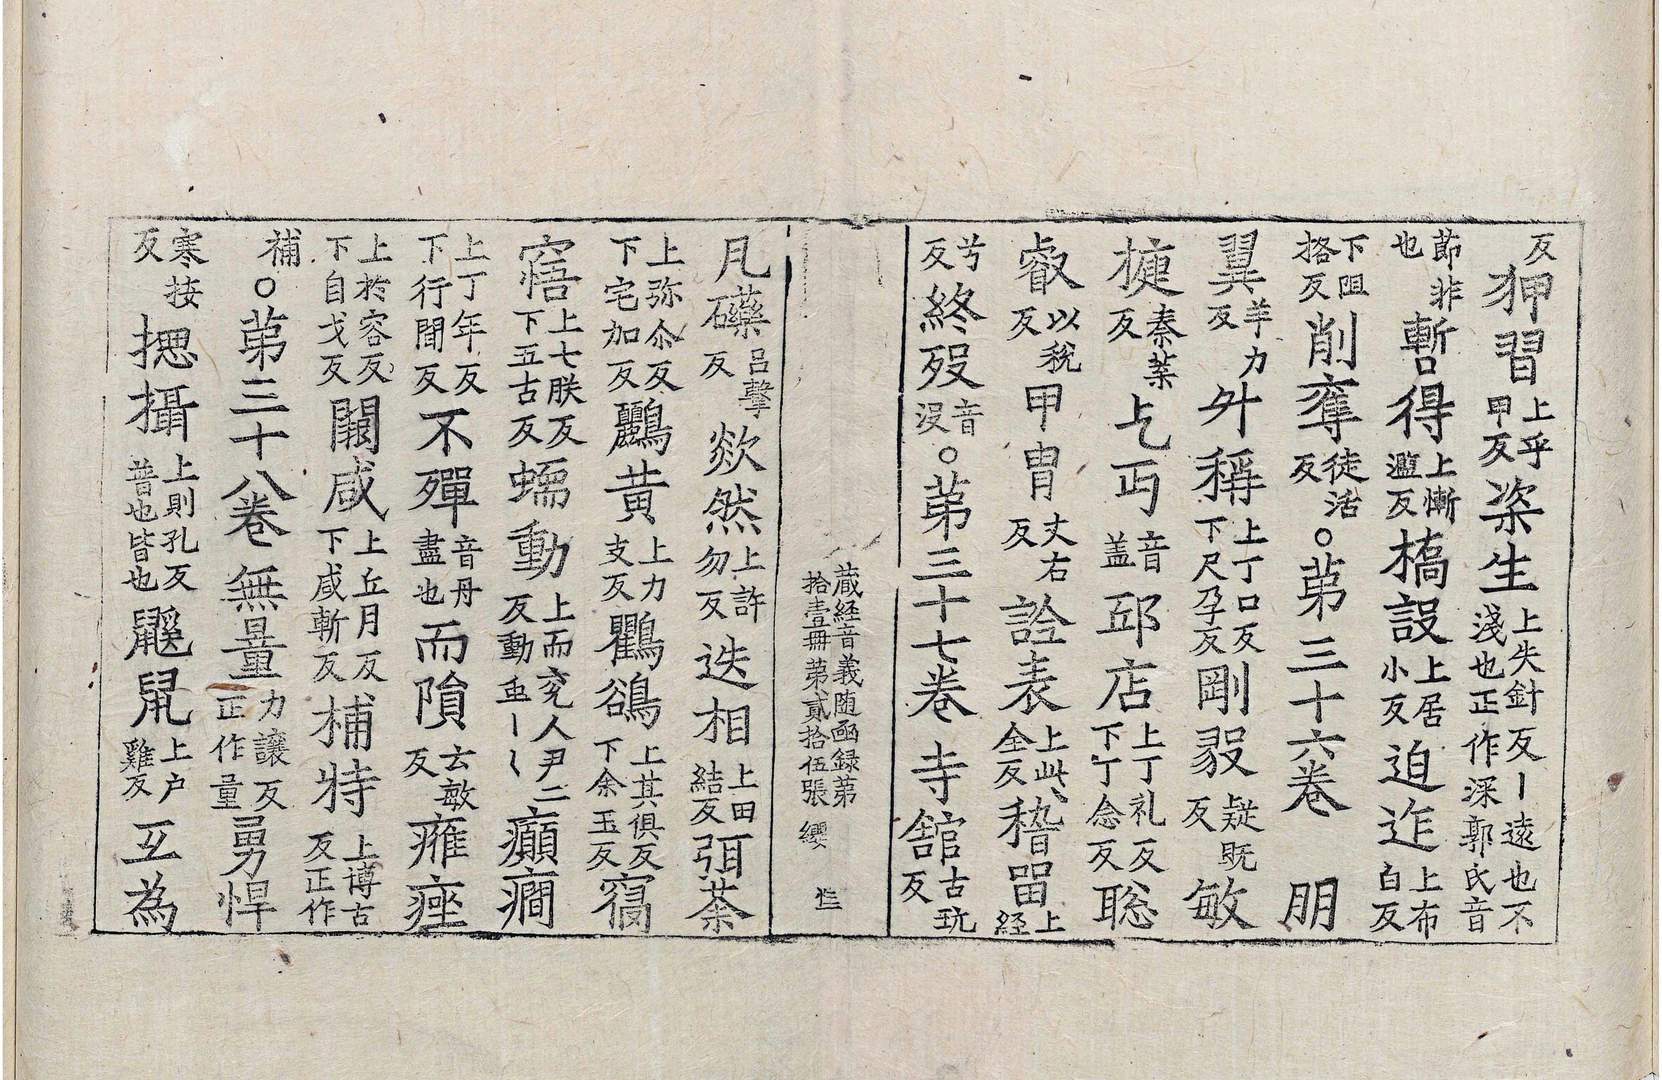 反狎習上乎甲反渁生上失針反丨遠也不淺也正作深郭氏音
節非也暫得上慚濫反撟設上居小反迫迮上布白反
下阻挌反削奪徒活反。第三十六卷 朋
翼羊力反外稱上丁口反下尺孕反剛毅疑既反敏
揵秦葉反乞丐音盖邸店上丁礼反下丁念反聡
叡以稅反甲胄丈右反詮表上此全反稽留上經
兮反終歿音沒。第三十七卷 寺舘古玩反
蔵経音義随函録第拾壹冊第貳拾伍張 纓
凡礫呂擊反欻然上許勿反迭相上田結反弭荼
上弥尒反下宅加反鸝黄上力支反鸜鵒上其俱反下余玉反寤
寤上七朕反下五古反蝡動上而兖人尹二反動虫丨丶癲癇
上丁年反下行間反不殫音丹盡也而隕云敏反癰痤
上於容反下自戈反闞咸上丘月反下咸斬反補特上博古反正作
補。第三十八卷 無量力讓反正作量勇悍
寒按反揔攝上則孔反普也皆也鼷鼠上户雞反互為